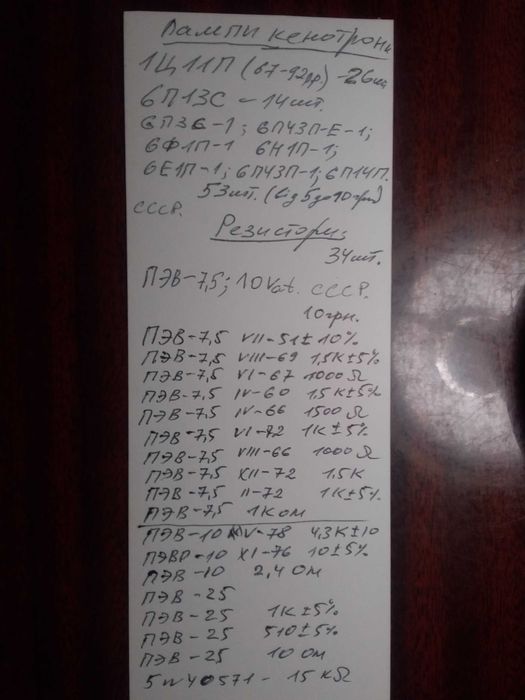 Лампи кенотрони
1Ц11П (67-92рр) - 26шт
6П13С - 14шт.
6П3С-1; 6П43П-Е-1;
6Ф1П-1 6Н1П-1;
6Е1П-1; 6П43П-1; 6П14П.
53шт. (від 5 до 10 грн)
СССР.
Резистори:
34шт.
ПЭВ-7,5; 10Vat. СССР.
10грн.
ПЭВ-7,5 VII-51±10%
ПЭВ-7,5 VIII-69 1,5К±5%
ПЭВ-7,5 VI-67 1000 Ω
ПЭВ-7,5 IV-60 1,5К±5%
ПЭВ-7,5 IV-66 1500 Ω
ПЭВ-7,5 VI-72 1К±5%
ПЭВ-7,5 VIII-66 1000 Ω
ПЭВ-7,5 XII-72 1,5К
ПЭВ-7,5 II-72 1К±5%
ПЭВ-7,5 1К ом
ПЭВ-10 IV-78 4,3К±10
ПЭВР-10 XI-76 10±5%
ПЭВ-10 2,4 Ом
ПЭВ-25
ПЭВ-25 1К±5%
ПЭВ-25 510±5%
ПЭВ-25 10 Ом
5W40571 - 15кΩ